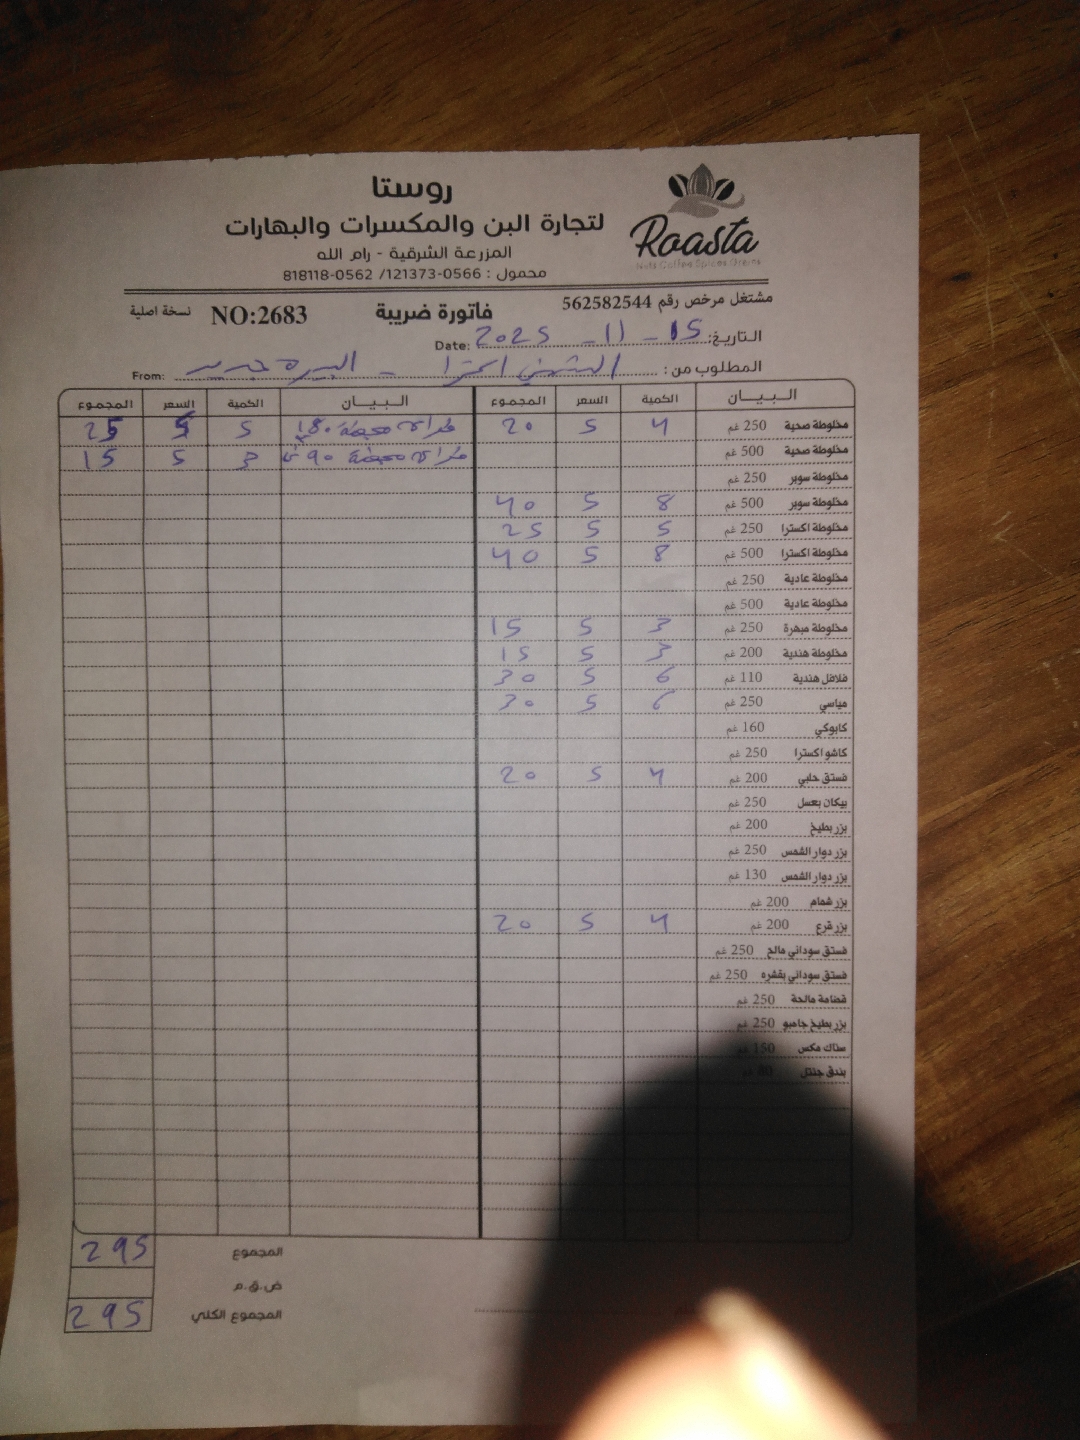 روستا
لتجارة البن والمكسرات والبهارات
المزرعة الشرقية - رام الله
محمول : 0566-121373 /0562-818118
Roasta
Nuts Coffee Spices Grains
مشتغل مرخص رقم 562582544
فاتورة ضريبة
NO:2683
نسخة اصلية
التاريخ: 15 - 11 - 2025 Date:
المطلوب من : الشني اكسترا - البيرة جديد From:
البـيـــان الكمية السعر المجموع البـيـــان الكمية السعر المجموع
مخلوطة صحية 250 غم 4 5 20 محمصة 180 5 5 25
مخلوطة صحية 500 غم محمصة 90 غ 3 5 15
مخلوطة سوبر 250 غم
مخلوطة سوبر 500 غم 8 5 40
مخلوطة اكسترا 250 غم 5 5 25
مخلوطة اكسترا 500 غم 8 5 40
مخلوطة عادية 250 غم
مخلوطة عادية 500 غم
مخلوطة مبهرة 250 غم 3 5 15
مخلوطة هندية 200 غم 3 5 15
فلافل هندية 110 غم 6 5 30
مياسي 250 غم 6 5 30
كابوكي 160 غم
كاشو اكسترا 250 غم
فستق حلبي 200 غم 4 5 20
بيكان بعسل 250 غم
بزر بطيخ 200 غم
بزر دوار الشمس 250 غم
بزر دوار الشمس 130 غم
بزر شمام 200 غم
بزر قرع 200 غم 4 5 20
فستق سوداني مالح 250 غم
فستق سوداني بقشره 250 غم
قضامة مالحة 250 غم
بزر بطيخ جامبو 250 غم
سناك مكس 150 غم
بندق جنتل 80 غم
المجموع 295
ض.ق.م
المجموع الكلي 295